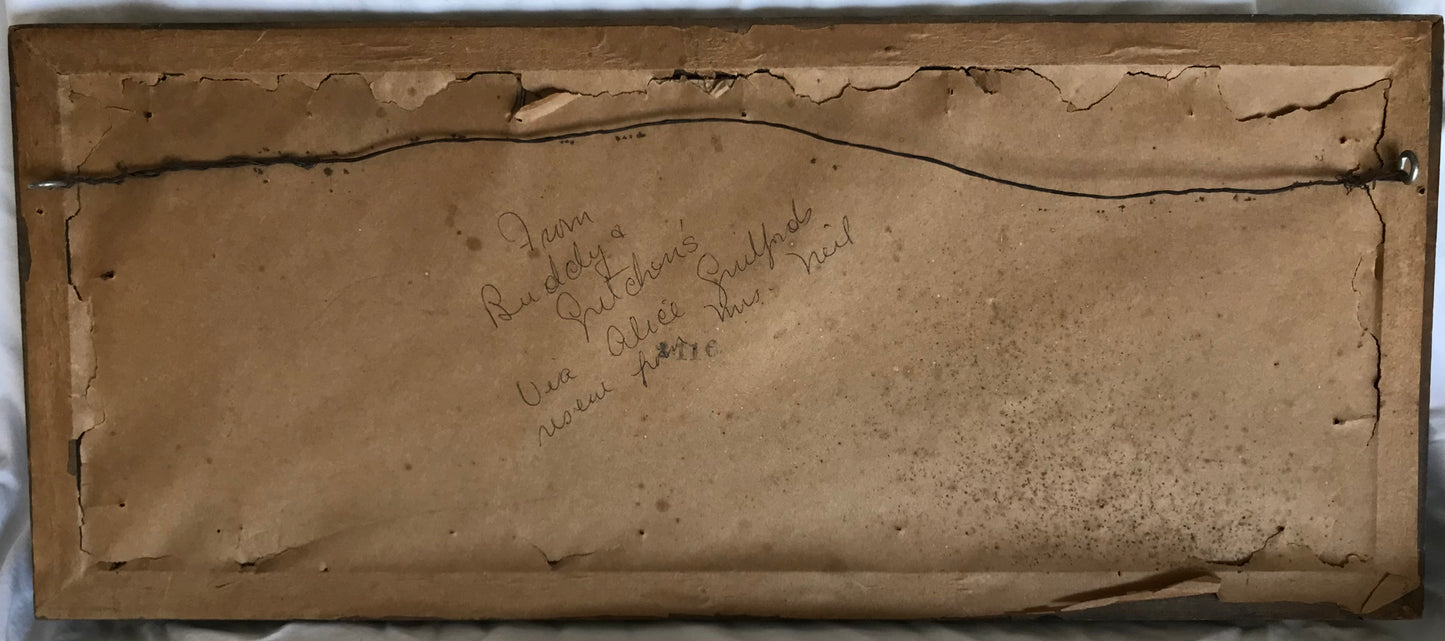 From
Buddy &
Gretchen's
Via Alice Guilfords
from Mrs. Neil
2116